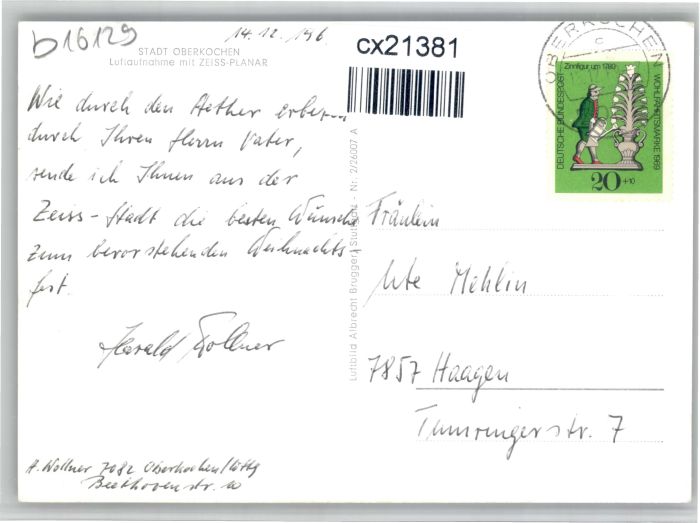 b16129
14.12.196
cx21381
STADT OBERKOCHEN
Luftaufnahme mit ZEISS-PLANAR
Wie durch den Aether erbeten
durch Ihren Herrn Vater,
sende ich Ihnen aus der
Zeiss-Stadt die besten Wünsche
zum bevorstehenden Weihnachts-
fest.
Harald Wollner
H. Wollner 7082 Oberkochen/Wttg
Beethovenstr. 10
Luftbild Albrecht Brugger, Stuttgart - Nr. 2/26007 A
OBERKOCHEN
c
Zinnfigur um 1780
DEUTSCHE BUNDESPOST
WOHLFAHRTSMARKE 1969
20+10
Fräulein
Ute Mehlin
7857 Haagen
Tumringerstr. 7